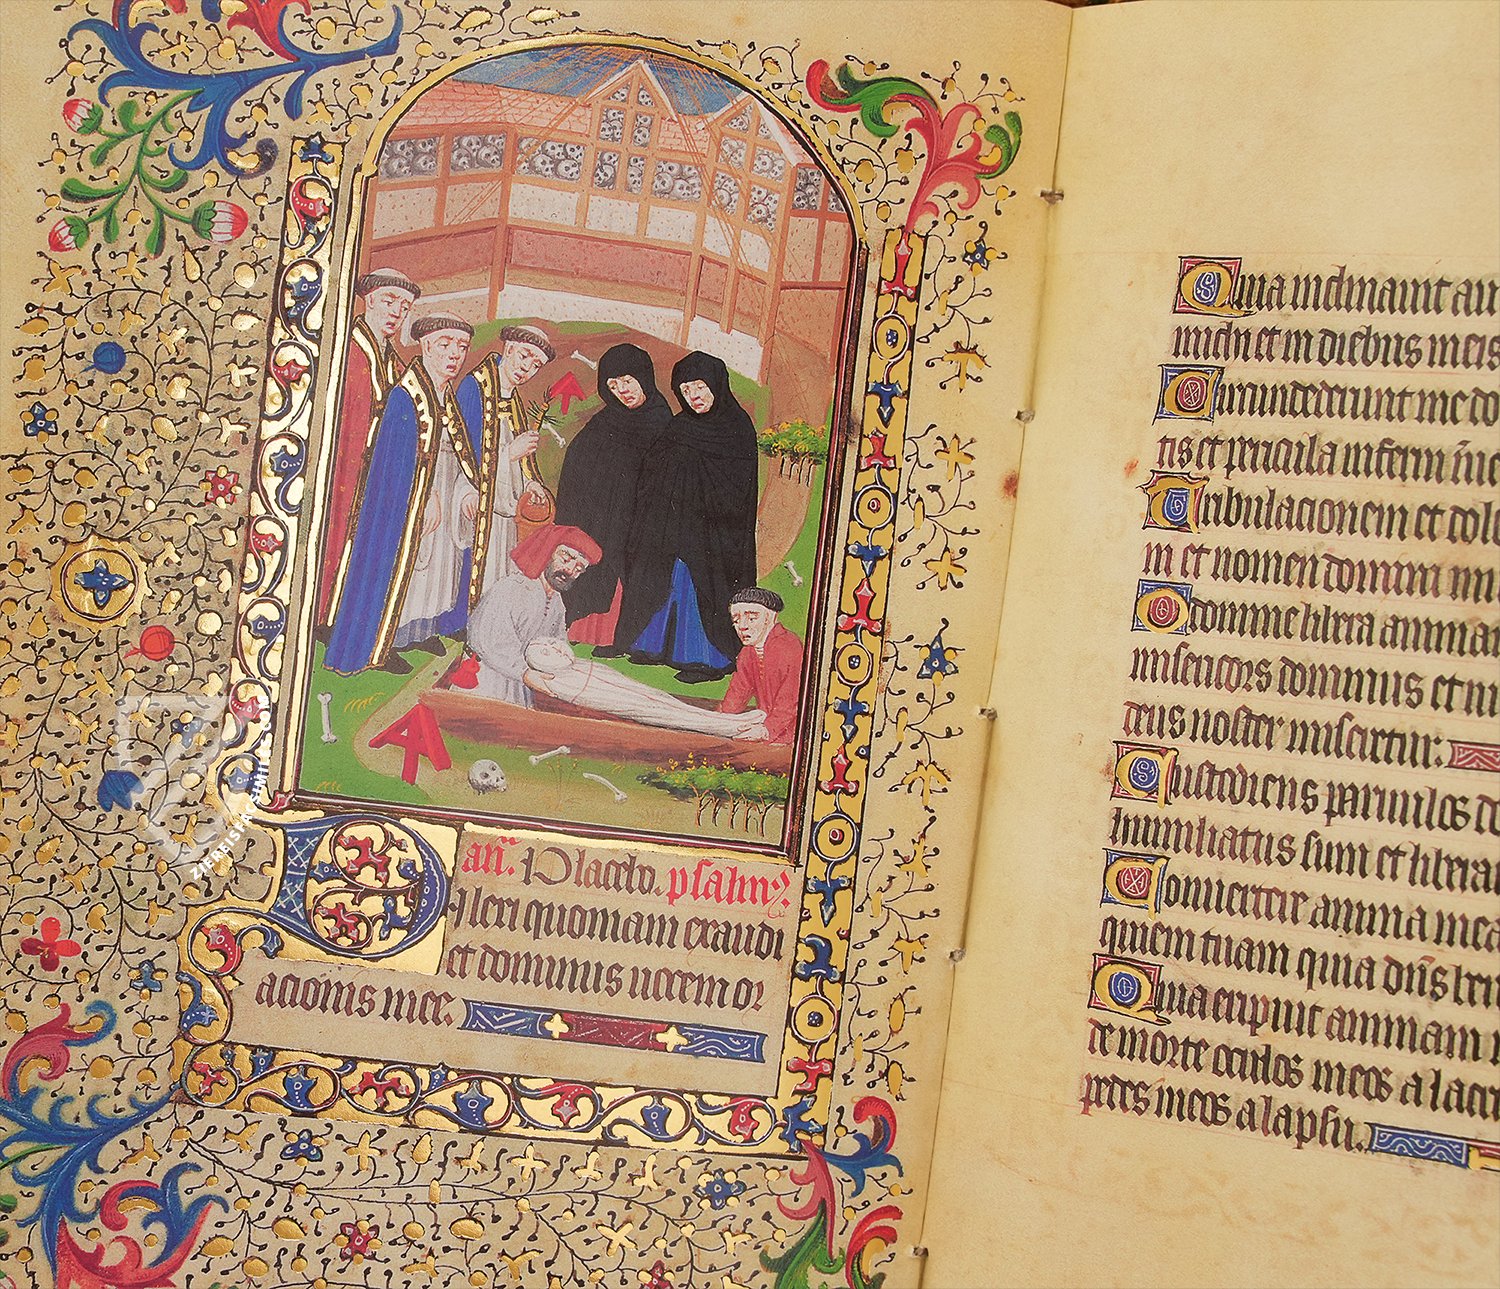 an̄. Placebo. psalm9.
Dilexi quoniam exaudi
et dominus uocem or
acionis mee.
Quia inclinauit au
michi et in diebus meis
Circumdederunt me do
tis et pericula inferni īue
Tribulacionem et dolo
m et nomen domini inu
O domine libera animam
misericors dominus et iu
deus noster miseretur:
Custodiens paruulos do
humiliatus sum et libera
Conuertere anima mea
quiem tuam quia dn̄s be
Quia eripuit animam
de morte oculos meos a lacri
pedes meos a lapsu.
ZIEREISFACSIMILES.COM